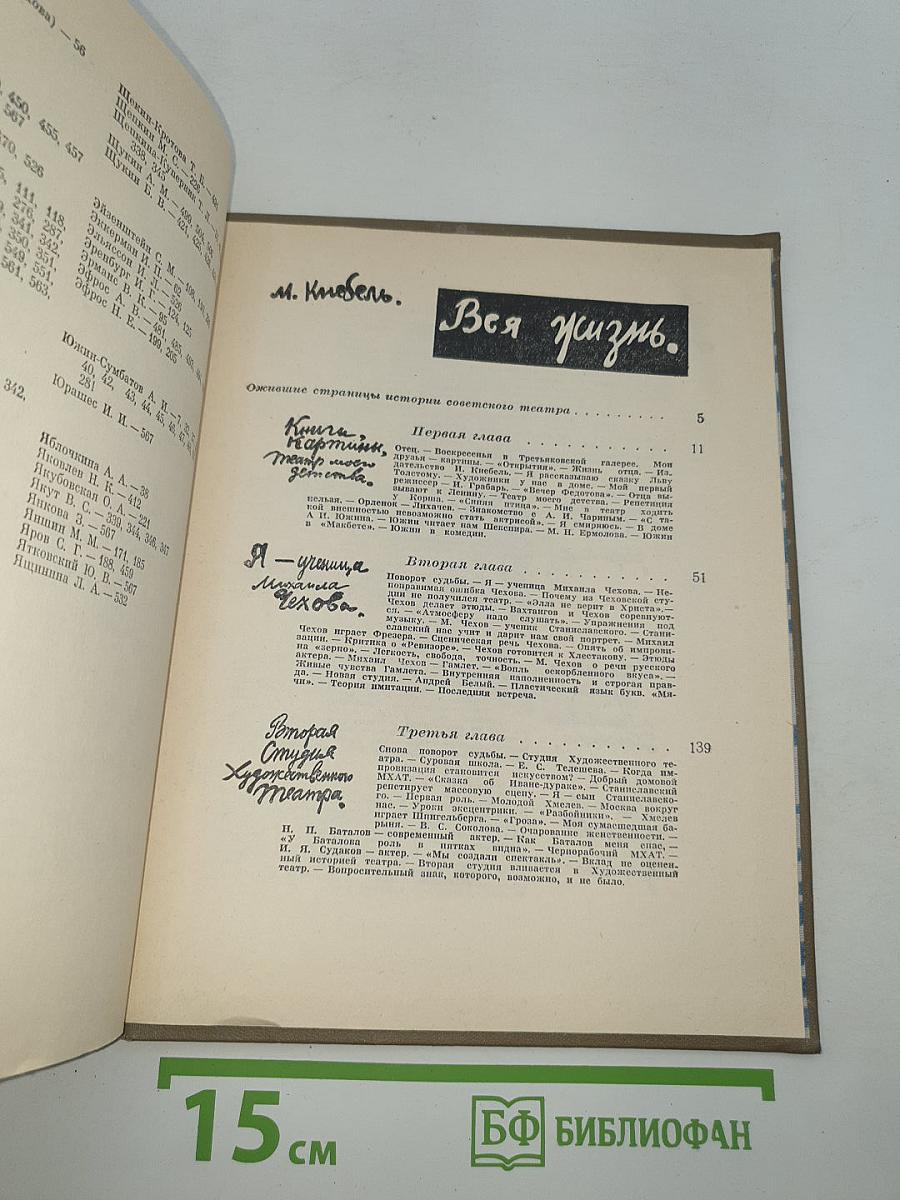 ова) — 56
450, 455, 457
567
370, 526
111, 118,
276, 287,
341, 342,
350, 351,
549, 551,
561, 563,
342,
Щекин-Кротова Т. В.
Щепкин М. С. — 226
Щепкина-Куперник Т. Л. —
338, 345
Щукин А. М.
Щукин Б. В. — 421,
Эйзенштейн С. М.
Эккерман И. П. — 62,
Эльяссон И. Л. — 526
Эренбург И. Г. — 124, 125
Эрманс В. К. — 95
Эфрос А. В. — 481, 485,
Эфрос Н. Е. — 199, 205
Южин-Сумбатов А. И. — 7,
40, 42, 43, 44, 45, 46, 47,
281
Юрашес И. И. — 567
Яблочкина А. А. — 38
Яковлев Н. К. — 412
Якубовская О. А. — 221
Якут В. С. — 339, 344, 346, 347
Янкова З. — 567
Яншин М. М. — 171, 185
Яров С. Г. — 188, 459
Ятковский Ю. В. — 567
Ящинина Л. А. — 532
М. Кнебель.
Вся жизнь.
Ожившие страницы истории советского театра . . . . . . . . . 5
Книги,
картины,
театр моего
детства.
Первая глава . . . . . . . . . . 11
Отец. — Воскресенья в Третьяковской галерее. Мои
друзья — картины. — «Открытия». — Жизнь отца. — Из-
дательство И. Кнебель. — Я рассказываю сказку Льву
Толстому. — Художники у нас в доме. — Мой первый
режиссер — И. Грабарь. — «Вечер Федотова». — Отца вы-
зывают к Ленину. — Театр моего детства. — Репетиция
у Корша. — «Синяя птица». — Мне в театр ходить
нельзя. — Орленок — Лихачев. — Знакомство с А. И. Чариным. — «С та-
кой внешностью невозможно стать актрисой». — Я смиряюсь. — В доме
А И. Южина. — Южин читает нам Шекспира. — М. Н. Ермолова. — Южин
в «Макбете». — Южин в комедии.
Я — ученица
Михаила
Чехова.
Вторая глава . . . . . . . . . . 51
Поворот судьбы. — Я — ученица Михаила Чехова. — Не-
поправимая ошибка Чехова. — Почему из Чеховской сту-
дии не получился театр. — «Элла не верит в Христа». —
Чехов делает этюды. — Вахтангов и Чехов соревнуют-
ся. — «Атмосферу надо слушать». — Упражнения под
музыку. — М. Чехов — ученик Станиславского. — Стани-
славский нас учит и дарит нам свой портрет. — Михаил
Чехов играет Фрезера. — Сценическая речь Чехова. — Опять об импрови-
зации. — Критика о «Ревизоре». — Чехов готовится к Хлестакову. — Этюды
на «зерно». — Легкость, свобода, точность. — М. Чехов о речи русского
актера. — Михаил Чехов — Гамлет. — «Вопль оскорбленного вкуса». —
Живые чувства Гамлета. — Внутренняя наполненность и строгая прав-
да. — Новая студия. — Андрей Белый. — Пластический язык букв. «Мя-
чи». — Теория имитации. — Последняя встреча.
Вторая
Студия
Художественного
Театра.
Третья глава . . . . . . . . . . 139
Снова поворот судьбы. — Студия Художественного те-
атра. — Суровая школа. — Е. С. Телешева. — Когда им-
провизация становится искусством? — Добрый домовой
МХАТ. — «Сказка об Иване-дураке». — Станиславский
репетирует массовую сцену. — Я — сын Станиславско-
го. — Первая роль. — Молодой Хмелев. — Москва вокруг
нас. — Уроки эксцентрики. — «Разбойники». — Хмелев
играет Шпигельберга. — «Гроза». — Моя сумасшедшая ба-
рыня. — В. С. Соколова. — Очарование женственности. —
Н. П. Баталов — современный актер. — Как Баталов меня спас, —
«У Баталова роль в пятках видна». — Чернорабочий МХАТ. —
И. Я. Судаков — актер. — «Мы создали спектакль». — Вклад не оценен-
ный историей театра. — Вторая студия вливается в Художественный
театр. — Вопросительный знак, которого, возможно, и не было.
15 см
БФ БИБЛИОФАН